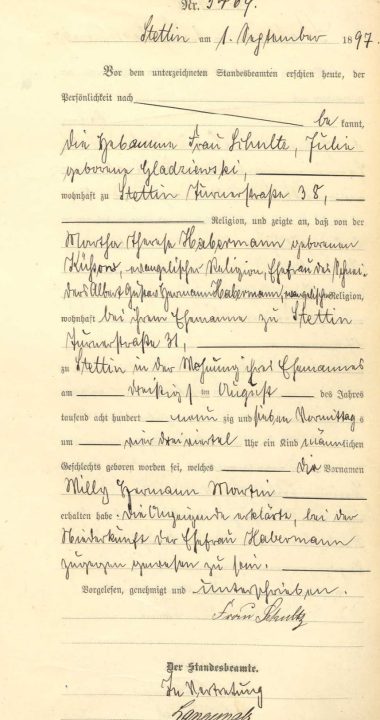 Nr. 3469.
Stettin am 1. September 1897.
Vor dem unterzeichneten Standesbeamten erschien heute, der
Persönlichkeit nach
be kannt,
die Hebamme Frau Schulte, Julie
geborene Gladziewski,
wohnhaft zu Stettin Turnerstraße 38,
Religion, und zeigte an, daß von der
Martha Therese Habermann geborenen
evangelischer Religion, Ehefrau des Schnei-
ders Albert Gustav Hermann Habermann, evangelischer Religion,
wohnhaft bei ihrem Ehemanne zu Stettin
Turnerstraße 31,
zu Stettin in der Wohnung ihres Ehemannes
am dreißig im August des Jahres
tausend acht hundert neun zig und sieben Vormittag s
um vier dreiviertel Uhr ein Kind männlichen
Geschlechts geboren worden sei, welches die Vornamen
Willy Hermann Martin
erhalten habe. Die Anzeigende erklärte, bei der
Niederkunft der Ehefrau Habermann
zugegen gewesen zu sein.
Vorgelesen, genehmigt und unterschrieben.
Frau Schultz
Der Standesbeamte.
In Vertretung